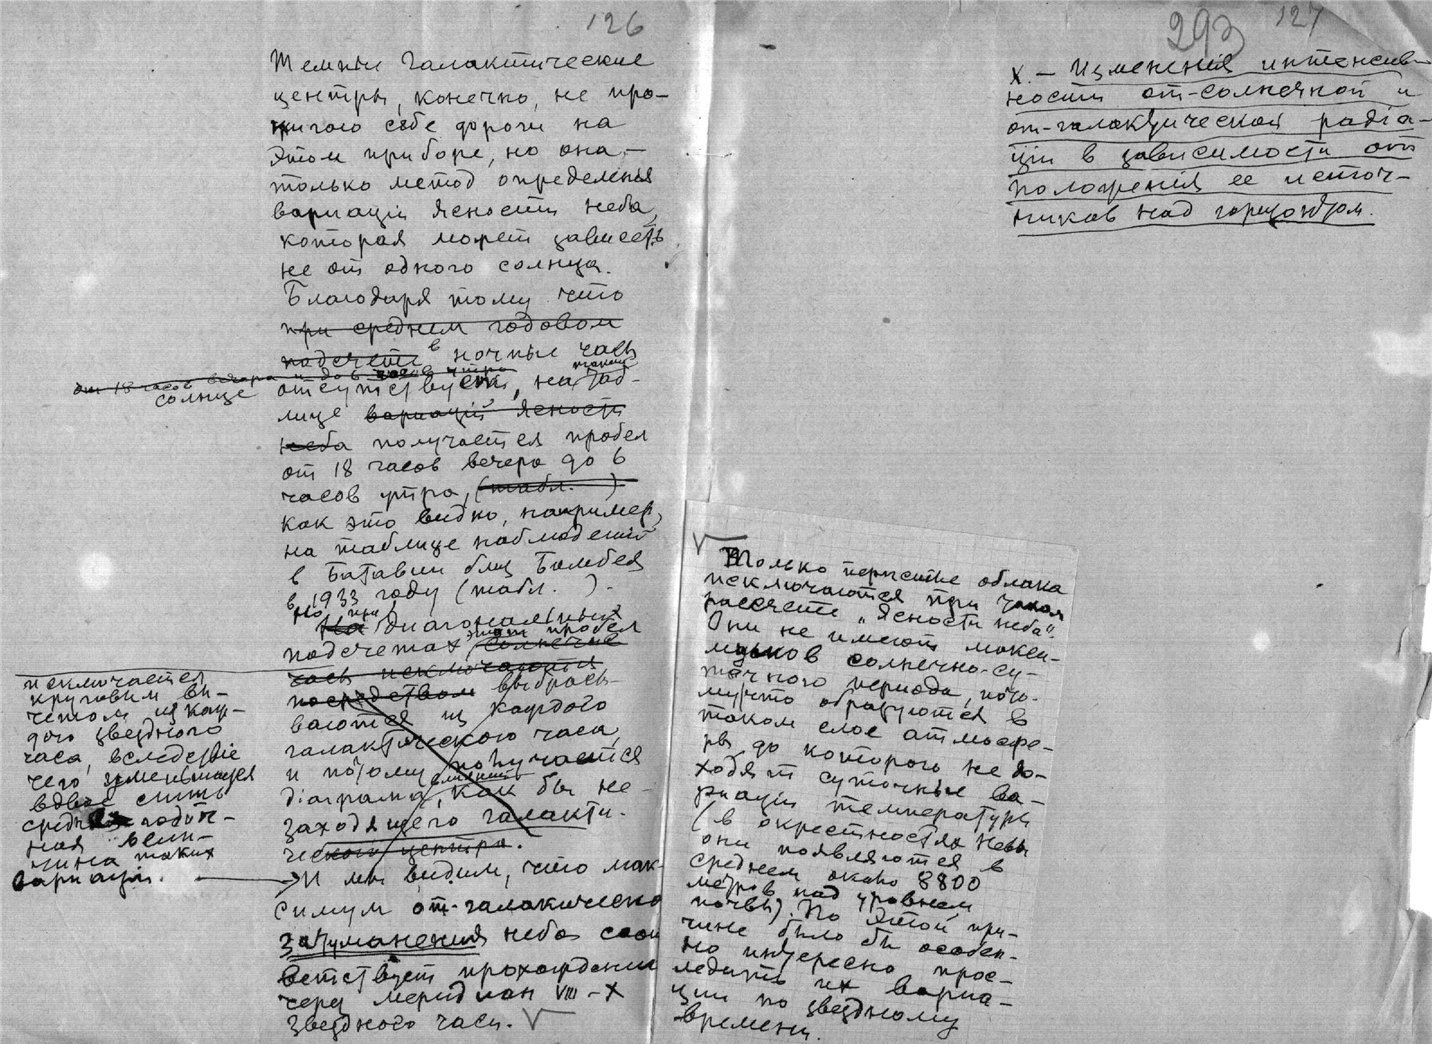 126
Темные галактические
центры, конечно, не про-
жигают себе дороги на
этом приборе, но она —
только метод определенія
вариаціи ясности неба,
которая может зависеть
не от одного солнца.
Благодаря тому что
при среднем годовом
подсчете в ночные часы
от 18 часов вечера и до 6 часов утра
солнце отсутствует, на такой таб-
лице вариаций ясности
неба получается пробел
от 18 часов вечера до 6
часов утра, (табл. )
как это видно, например,
на таблице наблюдений
в Батавии близ Бомбея
в 1933 году (табл. ).
Но при
На диагональных
подсчетах этот пробел солнечные
часы исключаются
посредством выбрасы-
ваются из каждого
галактического часа,
и потому получается
діаграма, как бы не-
заходящего галакти-
ческого центра.
исключается
круговым вы-
четом из каж-
дого звездного
часа, вследствіе
чего уменьшается
вдвое лишь
средняя годич-
ная вели-
чина таких
вариацій.
И мы видим, что мак-
симум от-галактическаго
затуманения неба соот-
ветствует прохождению
через меридиан VIII – X
звездного часа.
293 127
X. — Изменения интенсив-
ности от-солнечной и
от-галактической радіа-
ціи в зависимости от
положения ее источ-
ников над горизонтом.
Только перистые облака
исключаются при таком
рассчете „Ясности неба".
Они не имеют макси-
мумов солнечно-су-
точного периода, пото-
му что образуются в
таком слое атмосфе-
ры до которого не до-
ходят суточные ва-
риации температуры
(в окрестностях Невы
они появляются в
среднем около 8800
метров над уровнем
почвы). По этой при-
чине было бы особен-
но интересно прос-
ледить их вариа-
ции по звездному
времени.